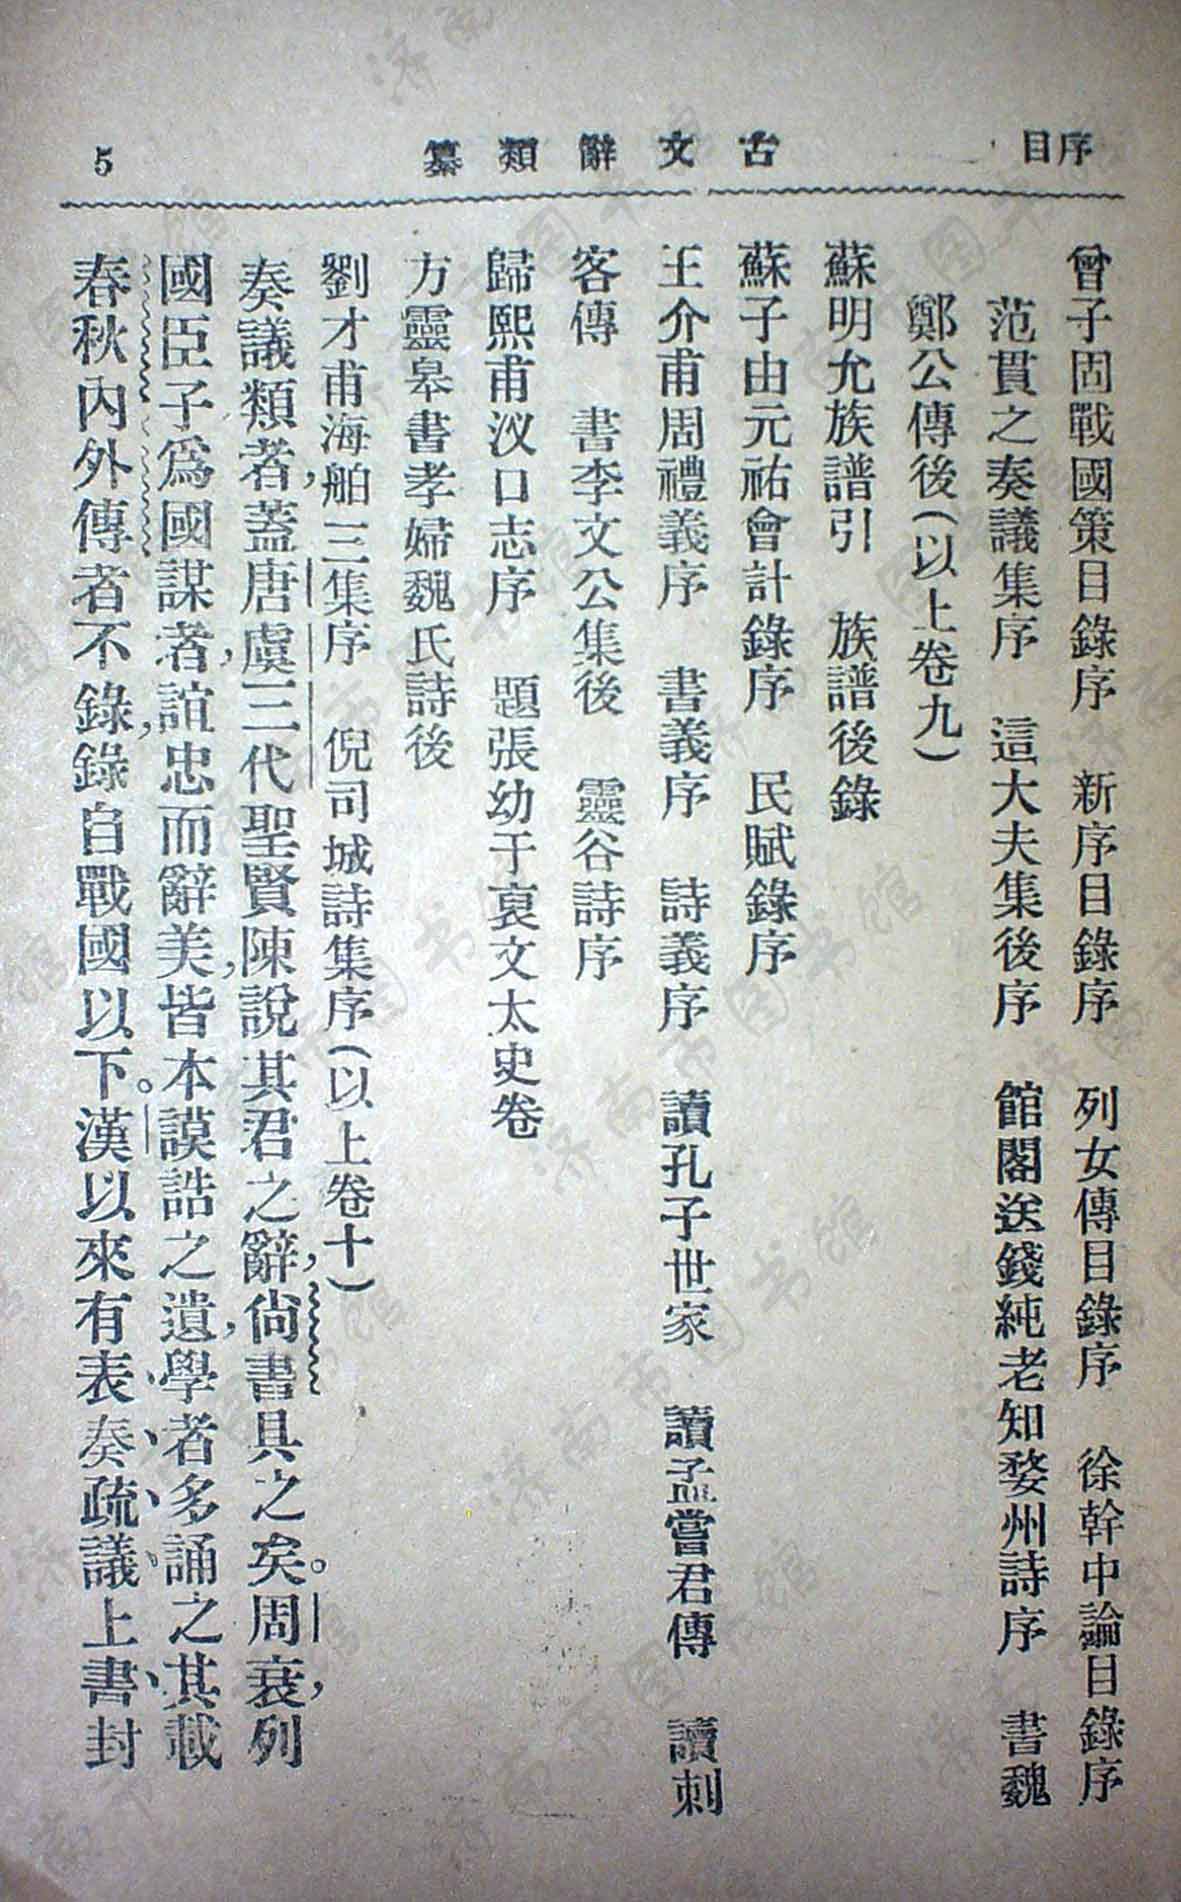 序目
古文辭類纂
5
曾子固戰國策目錄序　新序目錄序　列女傳目錄序　徐幹中論目錄序
范貫之奏議集序　這大夫集後序　館閣送錢純老知婺州詩序　書魏
鄭公傳後(以上卷九)
蘇明允族譜引　族譜後錄
蘇子由元祐會計錄序　民賦錄序
王介甫周禮義序　書義序　詩義序　讀孔子世家　讀孟嘗君傳　讀刺
客傳　書李文公集後　靈谷詩序
歸熙甫汊口志序　題張幼于裒文太史卷
方靈皋書孝婦魏氏詩後
劉才甫海舶三集序　倪司城詩集序(以上卷十)
奏議類者,蓋唐虞三代聖賢陳說其君之辭,尙書具之矣。周衰,列
國臣子爲國謀者,誼忠而辭美,皆本謨誥之遺,學者多誦之其載
春秋內外傳者不錄,錄自戰國以下。漢以來有表、奏、疏、議、上書、封
济南市图书馆